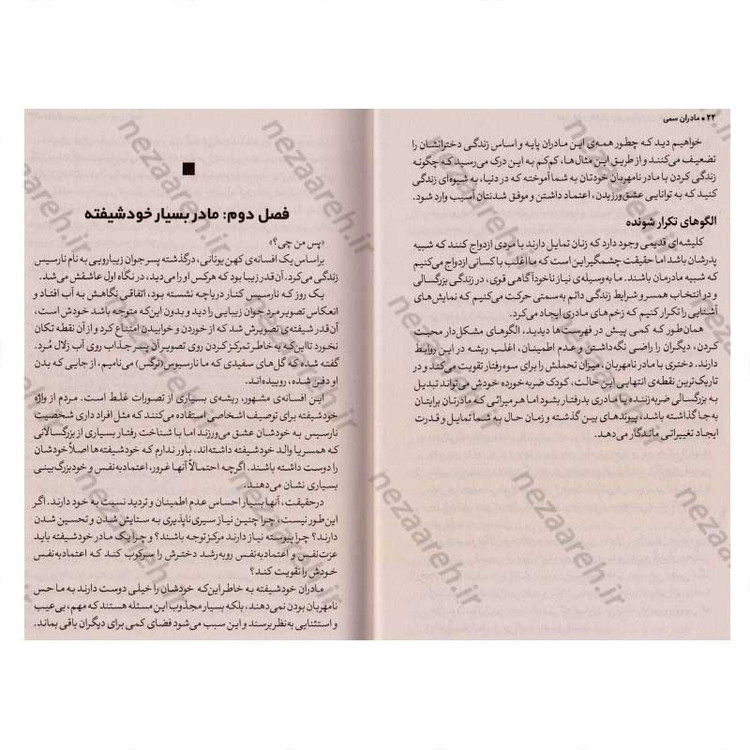 ۲۲ • مادران سمی
خواهیم دید که چطور همه‌ی این مادران پایه و اساس زندگی دخترانشان را
تضعیف می‌کنند و از طریق این مثال‌ها، کم‌کم به این درک می‌رسید که چگونه
زندگی کردن با مادر نامهربان خودتان به شما آموخته که در دنیا، به شیوه‌ای زندگی
کنید که به توانایی عشق‌ورزیدن، اعتماد داشتن و موفق شدنتان آسیب وارد شود.
الگوهای تکرار شونده
کلیشه‌ای قدیمی وجود دارد که زنان تمایل دارند با مردی ازدواج کنند که شبیه
پدرشان باشد اما حقیقت چشمگیر این است که ما اغلب با کسانی ازدواج می‌کنیم
که شبیه مادرمان باشند. ما به‌وسیله‌ی نیاز ناخودآگاهی قوی، در زندگی بزرگسالی
و در انتخاب همسر و شرایط زندگی دائم به سمتی حرکت می‌کنیم که نمایش‌های
آشنایی را تکرار کنیم که زخم‌های مادری ایجاد می‌کرد.
همان‌طور که کمی پیش در فهرست‌ها دیدید، الگوهای مشکل‌دار محبت
کردن، دیگران را راضی نگه‌داشتن و عدم اطمینان، اغلب ریشه در این روابط
دارند. دختری با مادر نامهربان، میزان تحملش را برای سوءرفتار تقویت می‌کند و در
تاریک‌ترین نقطه‌ی انتهایی این حالت، کودک ضربه‌خورده خودش می‌تواند تبدیل
به بزرگسالی ضربه‌زننده یا مادری بدرفتار بشود اما هر میراثی که مادرتان برایتان
به‌جا گذاشته باشد، پیوندهای بین گذشته و زمان حال به شما تمایل و قدرت
ایجاد تغییراتی ماندگار می‌دهد.
فصل دوم: مادر بسیار خودشیفته
«پس من چی؟»
براساس یک افسانه‌ی کهن یونانی، درگذشته پسر جوان زیبارویی به نام نارسیس
زندگی می‌کرد. آن‌قدر زیبا بود که هرکس او را می‌دید، در نگاه اول عاشقش می‌شد.
یک روز که نارسیس کنار دریاچه نشسته بود، اتفاقی نگاهش به آب افتاد و
انعکاس تصویر مرد جوان زیبایی را دید و بدون این‌که متوجه باشد خودش است،
آن‌قدر شیفته‌ی تصویرش شد که از خوردن و خوابیدن امتناع کرد و از آن نقطه تکان
نخورد تا این‌که به خاطر تمرکز کردن روی تصویر آن پسر جذاب روی آب زلال مُرد.
گفته شده که گل‌های سفیدی که ما نارسیوس (نرگس) می‌نامیم، از جایی که بدن
او دفن شده، روییده‌اند.
این افسانه‌ی مشهور، ریشه‌ی بسیاری از تصورات غلط است. مردم از واژه
خودشیفته برای توصیف اشخاصی استفاده می‌کنند که مثل افراد داری شخصیت
نارسیس به خودشان عشق می‌ورزند اما با شناخت رفتار بسیاری از بزرگسالانی
که همسر یا والد خودشیفته داشته‌اند، باور ندارم که خودشیفته‌ها اصلاً خودشان
را دوست داشته باشند. اگرچه احتمالاً آنها غرور، اعتمادبه‌نفس و خودبزرگ‌بینی
بسیاری نشان می‌دهند.
درحقیقت، آنها بسیار احساس عدم اطمینان و تردید نسبت به خود دارند. اگر
این‌طور نیست، چرا چنین نیاز سیری‌ناپذیری به ستایش شدن و تحسین شدن
دارند؟ چرا پیوسته نیاز دارند مرکز توجه باشند؟ و چرا یک مادر خودشیفته باید
عزت‌نفس و اعتمادبه‌نفس روبه‌رشد دخترش را سرکوب کند که اعتمادبه‌نفس
خودش را تقویت کند؟
مادران خودشیفته به خاطر این‌که خودشان را خیلی دوست دارند به ما حس
نامهربان بودن نمی‌دهند، بلکه بسیار مجذوب این مسئله هستند که مهم، بی‌عیب
و استثنایی به‌نظر برسند و این سبب می‌شود فضای کمی برای دیگران باقی بماند.
nezaareh.ir